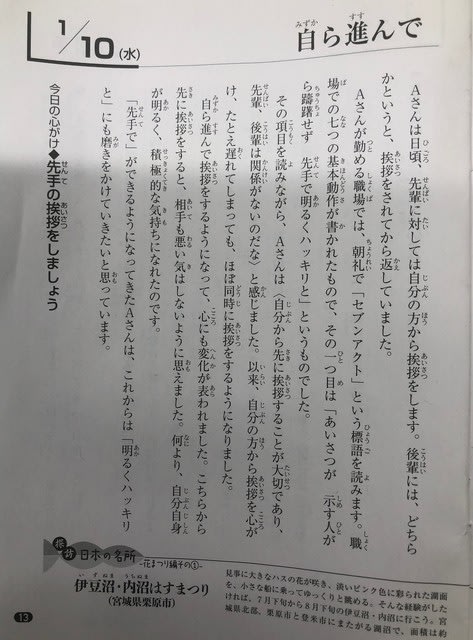 1/10(水)
自ら進んで
Aさんは日頃、先輩に対しては自分の方から挨拶をします。後輩には、どちら
かというと、挨拶をされてから返していました。
Aさんが勤める職場では、朝礼で「セブンアクト」という標語を読みます。職
場での七つの基本動作が書かれたもので、その一つ目は「あいさつが 示す人が
ら躊躇せず 先手で明るくハッキリと」というものでした。
その項目を読みながら、Aさんは〈自分から先に挨拶することが大切であり、
先輩、後輩は関係がないのだな〉と感じました。以来、自分の方から挨拶を心が
け、たとえ遅れてしまっても、ほぼ同時に挨拶をするようになりました。
自ら進んで挨拶をするようになって、心にも変化が表われました。こちらから
先に挨拶をすると、相手も悪い気はしないように思えました。何より、自分自身
が明るく、積極的な気持ちになれたのです。
「先手で」ができるようになってきたAさんは、これからは「明るくハッキリ
と」にも磨きをかけていきたいと思っています。
今日の心がけ◆先手の挨拶をしましょう
探訪 日本の名所
―花まつり編その①―
伊豆沼・内沼はすまつり
(宮城県栗原市)
見事に大きなハスの花が咲き、淡いピンク色に彩られた湖面
を、小さな船に乗ってゆっくりと眺める。そんな経験がした
ければ、7月下旬から8月下旬の伊豆沼・内沼に行こう。宮
城県北部、栗原市と登米市にまたがる湖沼で、面積は約
13